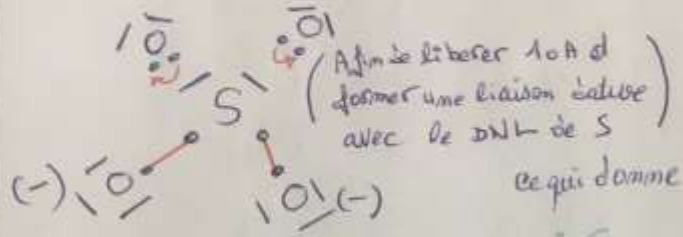 O O
S
(-) O O (-)
( Afin de libérer 1 OA et
former une liaison dative
avec le DNL de S )
ce qui donne